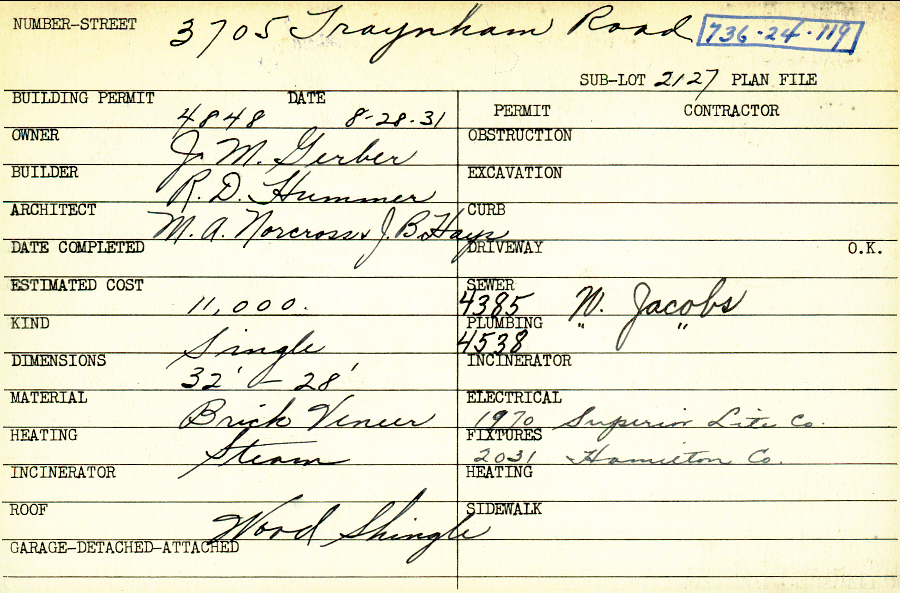 NUMBER-STREET 3705 Traynham Road 736-24-119
SUB-LOT 2127 PLAN FILE
BUILDING PERMIT 4848 DATE 8-28-31
OWNER J. M. Gerber
BUILDER R. D. Hummer
ARCHITECT M. A. Norcross & J. B. Hays
DATE COMPLETED
ESTIMATED COST 11,000.
KIND Single
DIMENSIONS 32' - 28'
MATERIAL Brick Veneer
HEATING Steam
INCINERATOR
ROOF Wood Shingle
GARAGE-DETACHED-ATTACHED
PERMIT CONTRACTOR
OBSTRUCTION
EXCAVATION
CURB
DRIVEWAY O.K.
SEWER 4385 W. Jacobs
PLUMBING 4538 " "
INCINERATOR
ELECTRICAL 1970 Superior Lite Co.
FIXTURES 2031 Hamilton Co.
HEATING
SIDEWALK